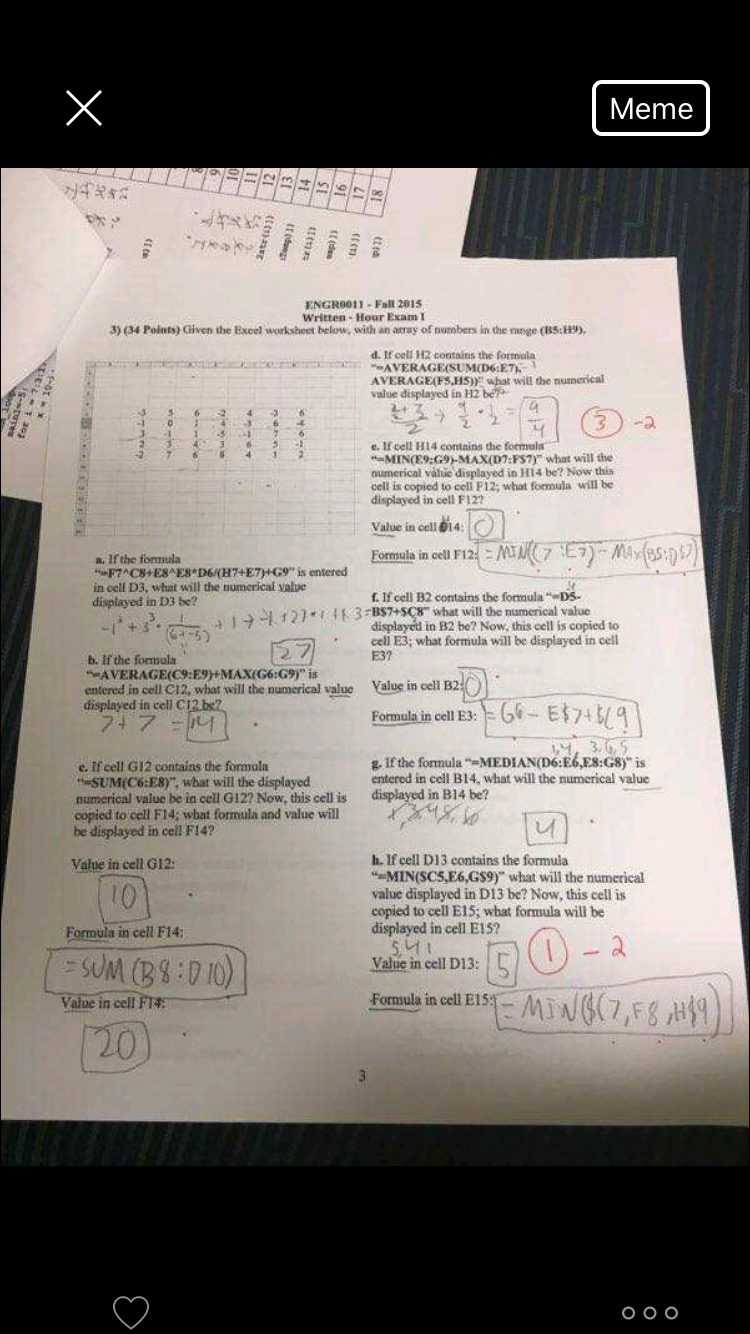 Meme
8
9
10
11
12
13
14
15
16
17
18
ENGR0011 - Fall 2015
Written - Hour Exam I
3) (34 Points) Given the Excel worksheet below, with an array of numbers in the range (B5:H9).
-3 5 6 -2 4 -3 6
-1 0 1 4 -3 6 -4
3 -1 1 -5 -1 7 6
2 3 4 3 6 5 -1
-2 7 6 8 4 1 2
a. If the formula
"=F7^C8+E8^E8*D6/(H7+E7)+G9" is entered
in cell D3, what will the numerical value
displayed in D3 be?
27
b. If the formula
"=AVERAGE(C9:E9)+MAX(G6:G9)" is
entered in cell C12, what will the numerical value
displayed in cell C12 be?
7+7 = 14
c. If cell G12 contains the formula
"=SUM(C6:E8)", what will the displayed
numerical value be in cell G12? Now, this cell is
copied to cell F14; what formula and value will
be displayed in cell F14?
Value in cell G12:
10
Formula in cell F14:
=SUM(B8:D10)
Value in cell F14:
20
d. If cell H2 contains the formula
"=AVERAGE(SUM(D6:E7),
AVERAGE(F5,H5))" what will the numerical
value displayed in H2 be?
9/4
3 -2
e. If cell H14 contains the formula
"=MIN(E9:G9)-MAX(D7:F$7)" what will the
numerical value displayed in H14 be? Now this
cell is copied to cell F12; what formula will be
displayed in cell F12?
Value in cell 14: 0
Formula in cell F12: =MIN(C7:E7)-MAX(B5:D$7)
f. If cell B2 contains the formula "=D5-
B$7+$C8" what will the numerical value
displayed in B2 be? Now, this cell is copied to
cell E3; what formula will be displayed in cell
E3?
Value in cell B2: 0
Formula in cell E3: =G6-E$7+$C9
1,4, 3,6,5
g. If the formula "=MEDIAN(D6:E6,E8:G8)" is
entered in cell B14, what will the numerical value
displayed in B14 be?
4
h. If cell D13 contains the formula
"=MIN($C5,E6,G$9)" what will the numerical
value displayed in D13 be? Now, this cell is
copied to cell E15; what formula will be
displayed in cell E15?
5,4 1
Value in cell D13: 5 1 -2
Formula in cell E15: =MIN($C7,F8,H$9)
3